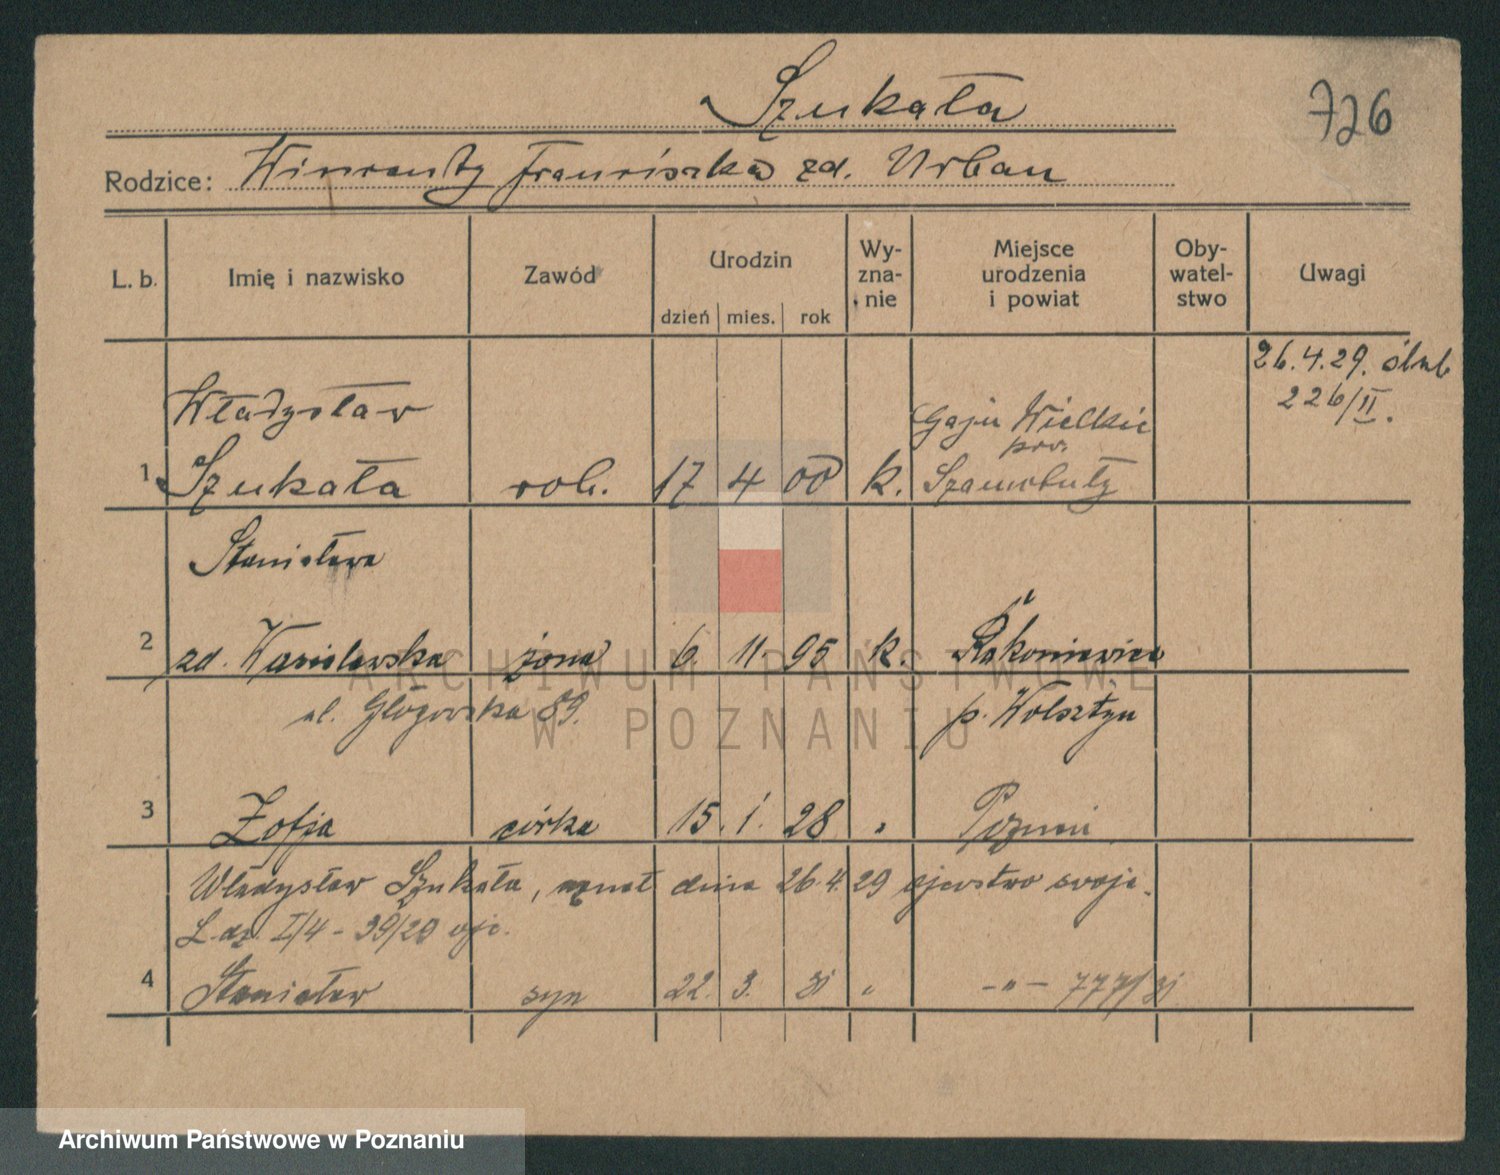 Szukała
726
Rodzice: Wincenty Franciszka zd. Urban
L. b. Imię i nazwisko Zawód Urodzin dzień mies. rok Wy-zna-nie Miejsce urodzenia i powiat Oby-watel-stwo Uwagi
26.4.29. ślub
226/II.
Władysław
Gaju Wielkie
pow.
1 Szukała rob. 17 4 00 k. Szamotuły
Stanisława
2 zd. Wasielewska żona 6. 11. 95 k. Rakoniewice
ul. Głogowska 89. p. Wolsztyn
3 Zofja córka 15. 1. 28 „ Poznań
Władysław Szukała, uznał dnia 26.4.29 ojcostwo swoje.
L. dz. I/4 - 39/29
4 Stanisław syn 22. 3. 31 „ -„- 777/31
ARCHIWUM PAŃSTWOWE
W POZNANIU
Archiwum Państwowe w Poznaniu